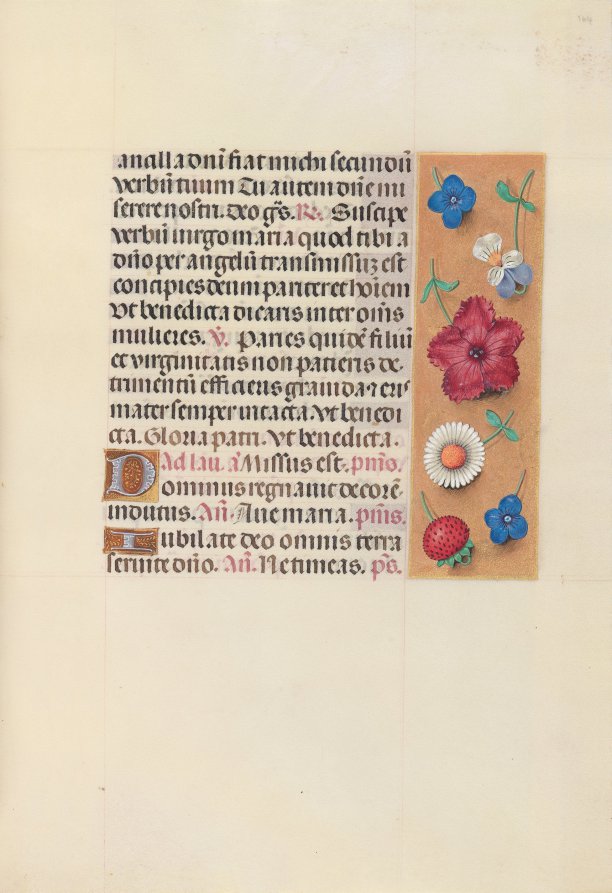 164
ancilla dnī fiat michi secundū
verbū tuum Tu autem dn̄e mi
serere nostri. deo gr̄s. R̄. Suscipe
verbū virgo maria quod tibi a
dn̄o per angelū transmissuʒ est
concipies deum paries et hoīem
vt benedicta dicaris inter om̄s
mulieres. V̄. Paries quidē filiū
et virginitatis non patieris de-
trimentū efficieris grauida ⁊ eris
mater semper intacta. vt benedi
cta. Gloria patri. vt benedicta.
Ad lau. a Missus est. pm̄o.
Dominus regnauit decorē
indutus. Añ. Aue maria. pm̄s.
Iubilate deo omnis terra
seruite dn̄o. Añ. Ne timeas. pš.